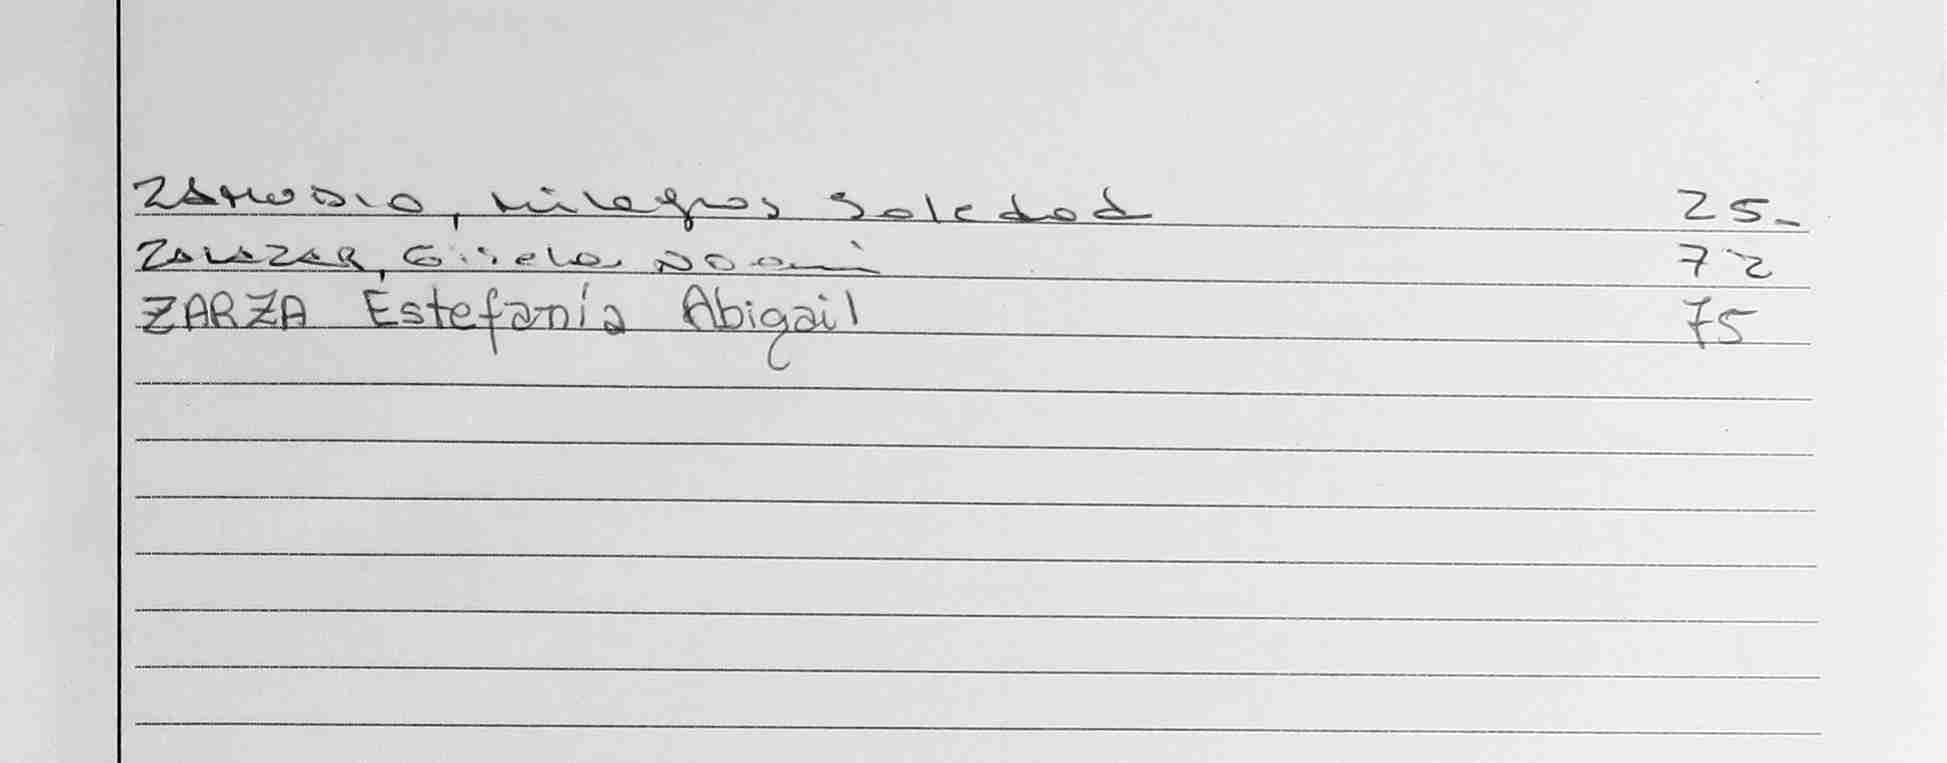 ZAMUDIO, Milagros Soledad 25-
ZALAZAR, Gisela Noemi 72
ZARZA Estefanía Abigail 75